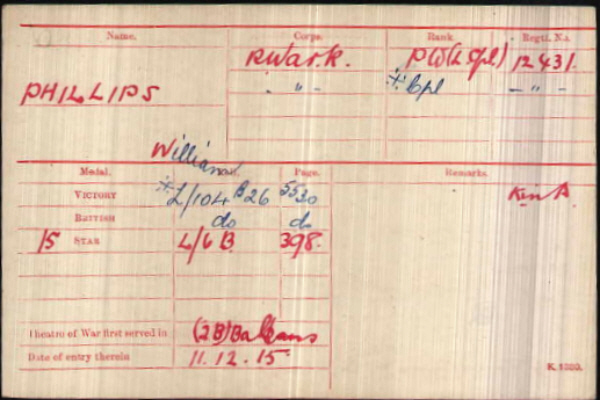 Name. Corps. Rank. Regtl. No.
R War. R. Pte (L Cpl) 12431.
PHILLIPS " * Cpl "
William
Medal. Roll. Page. Remarks.
VICTORY * L/104 B26 5530 Kin A
BRITISH do do
15 STAR L/6 B 398.
Theatre of War first served in (2B) Balkans
Date of entry therein 11. 12. 15
K. 1380.